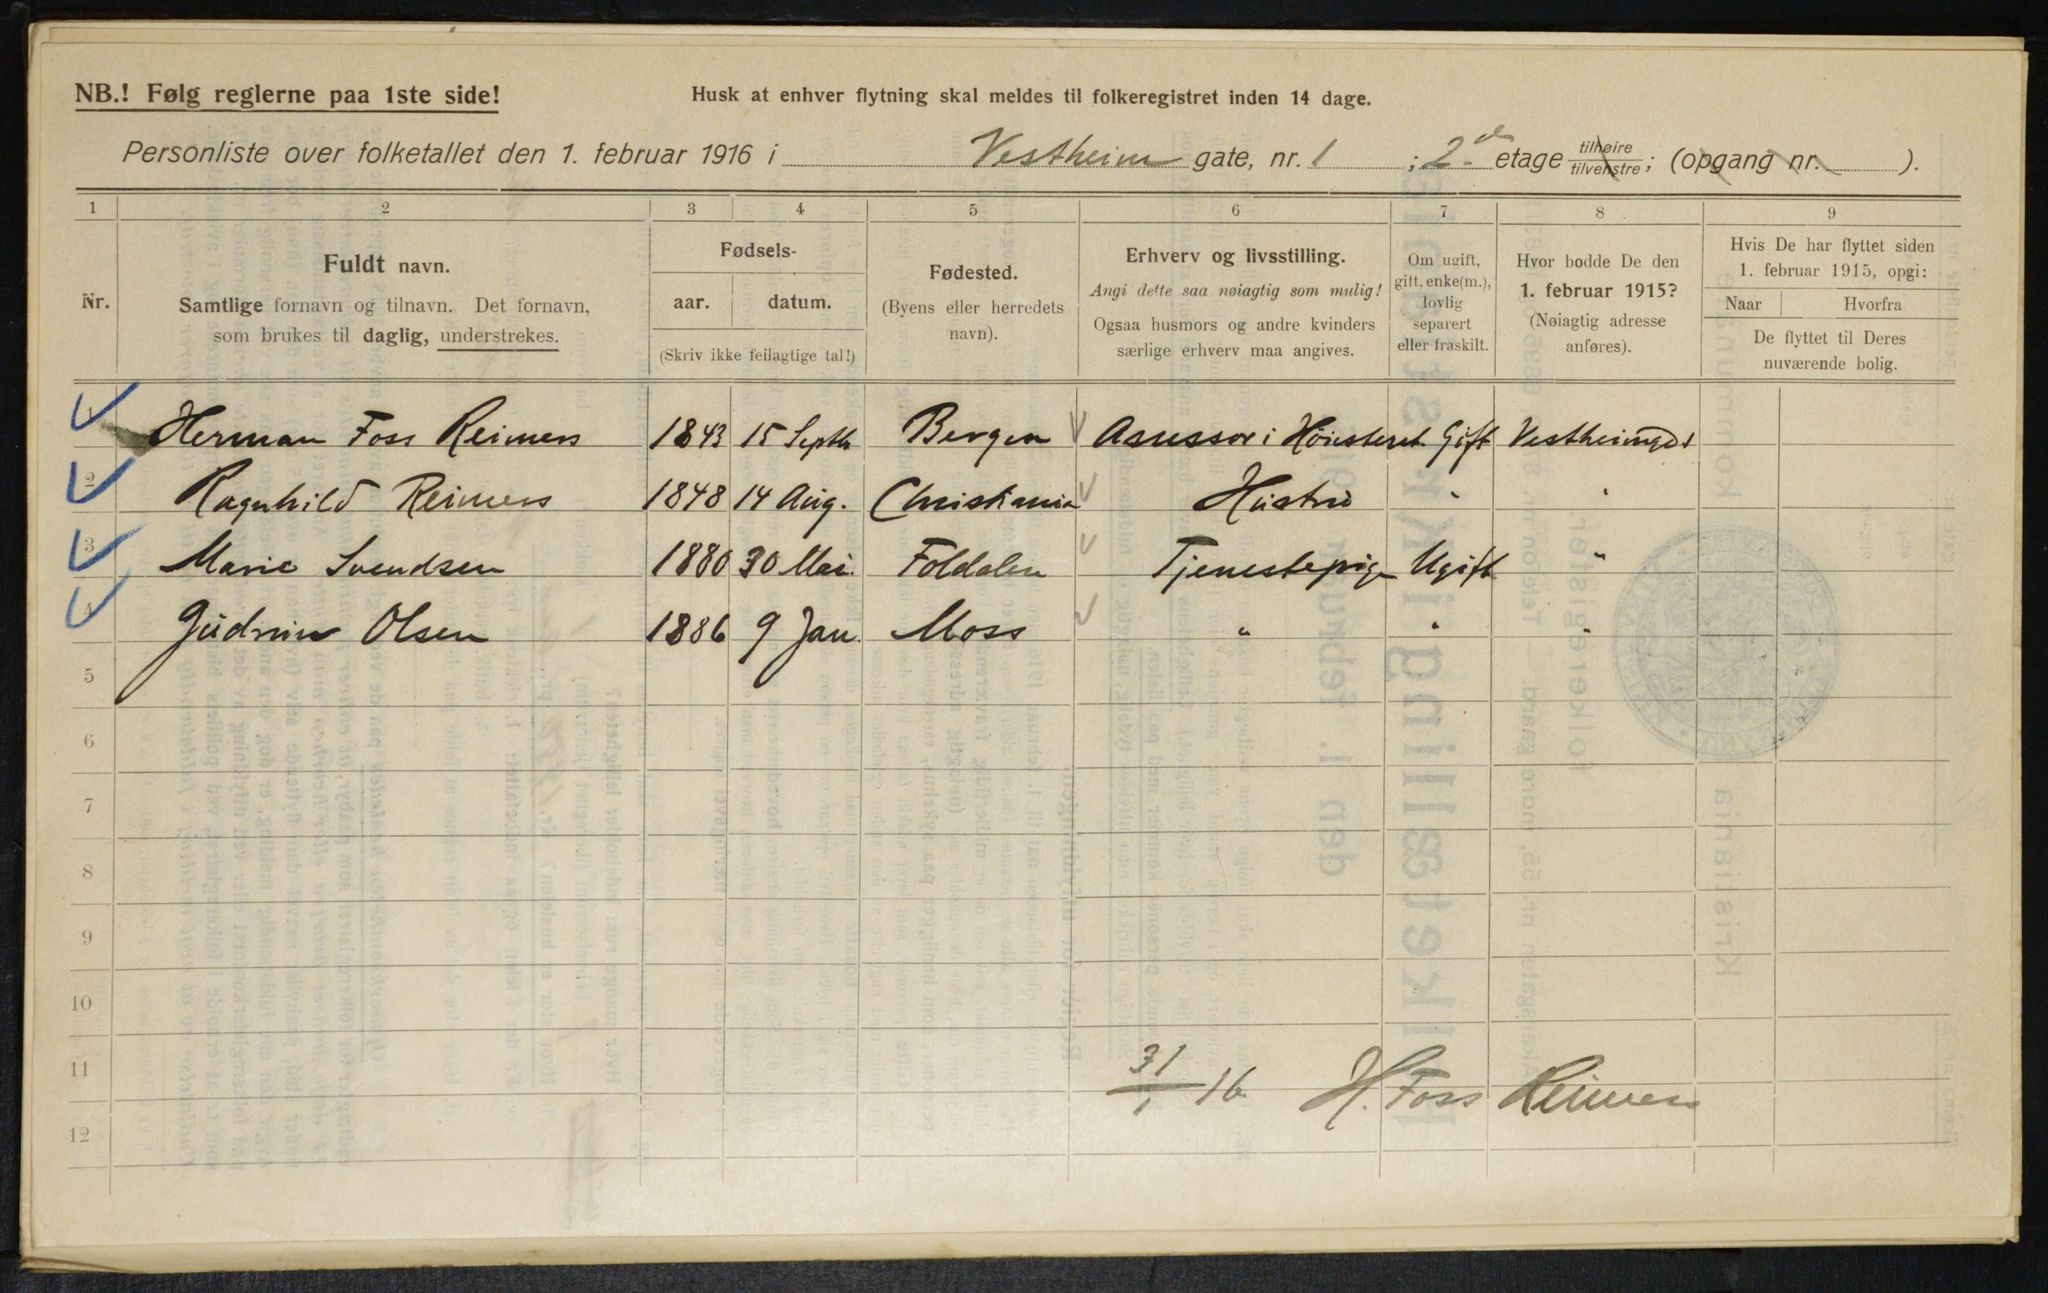 NB.! Følg reglerne paa 1ste side!
Husk at enhver flytning skal meldes til folkeregistret inden 14 dage.
Personliste over folketallet den 1. februar 1916 i Vestheim gate, nr. 1 ; 2de etage tilhøire tilvenstre ; (opgang nr. ).
1 2 3 4 5 6 7 8 9
Nr.
Fuldt navn.
Samtlige fornavn og tilnavn. Det fornavn,
som brukes til daglig, understrekes.
Fødsels-
aar. datum.
(Skriv ikke feilagtige tal!)
Fødested.
(Byens eller herredets
navn).
Erhverv og livsstilling.
Angi dette saa nøiagtig som mulig!
Ogsaa husmors og andre kvinders
særlige erhverv maa angives.
Om ugift,
gift, enke(m.),
lovlig
separert
eller fraskilt.
Hvor bodde De den
1. februar 1915?
(Nøiagtig adresse
anføres).
Hvis De har flyttet siden
1. februar 1915, opgi:
Naar Hvorfra
De flyttet til Deres
nuværende bolig.
1 Herman Foss Reimers 1843 15 Septb Bergen Assessor i Höiesteret Gift Vestheimgd 1
2 Ragnhild Reimers 1848 14 Aug. Christiania Hustru " "
3 Marie Svendsen 1880 30 Mai. Foldalen Tjenestepige Ugift "
4 Gudrun Olsen 1886 9 Jan. Moss " " "
5
6
7
8
9
10
11
12
31/1 16 H. Foss Reimers